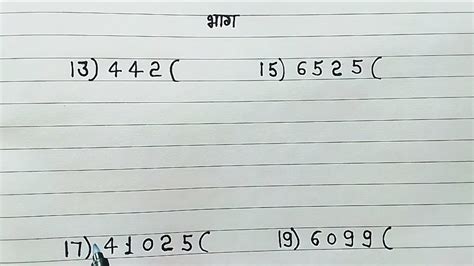 भाग
13) 442 ( 15) 6525 (
17) 41025 ( 19) 6099 (